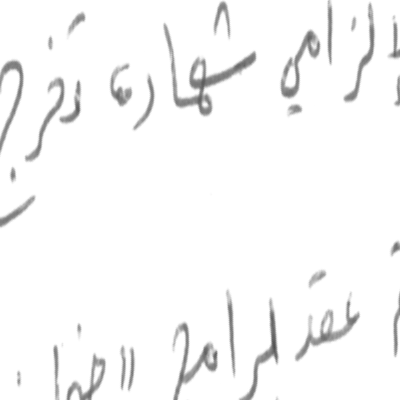 إلزامي شهادة تخرج
عقد لبرامج "ضما